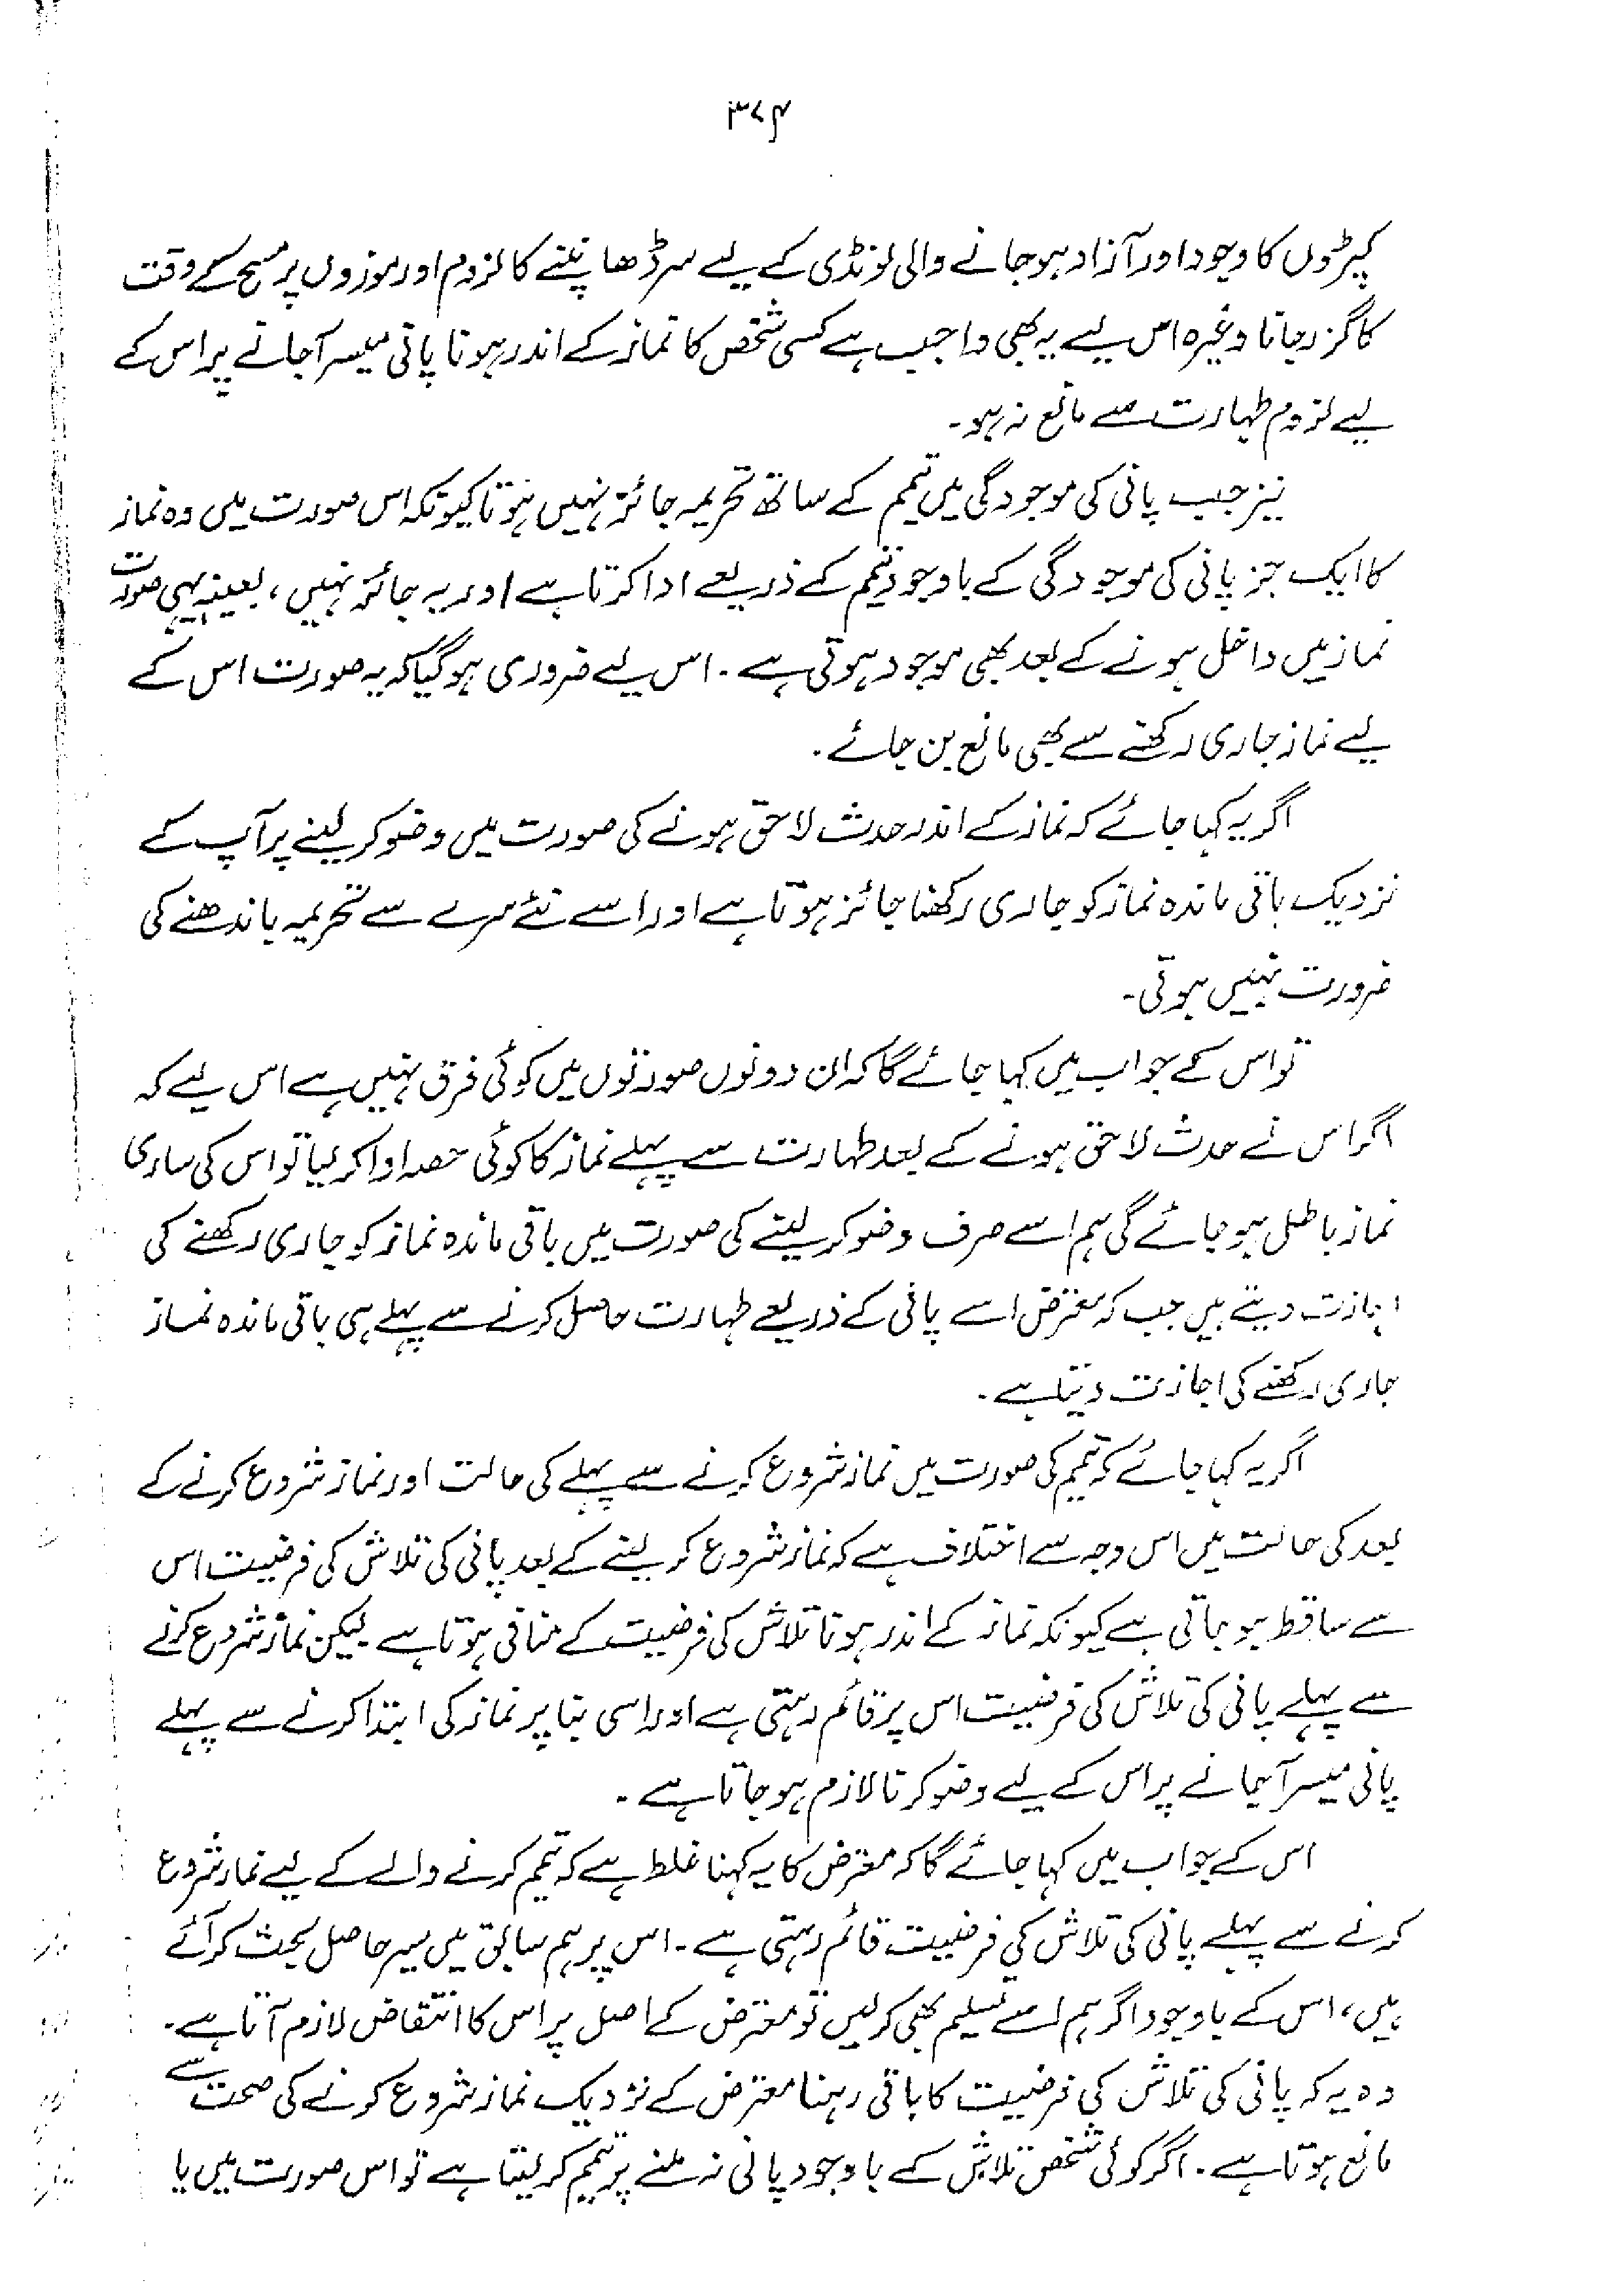 ۳۷۴
کپڑوں کا وجود اور آزاد ہو جانے والی لونڈی کے لیے سر ڈھانپنے کا لزوم اور موزوں پر مسح کے وقت
کا گزر جانا وغیرہ اس لیے یہ بھی واجب ہے کسی شخص کا نماز کے اندر ہونا پانی میسر آجانے پر اس کے
لیے لزوم طہارت سے مانع نہ ہو۔
نیز جب پانی کی موجودگی میں تیمم کے ساتھ تحریمہ جائز نہیں ہوتا کیونکہ اس صورت میں وہ نماز
کا ایک جز پانی کی موجودگی کے باوجود تیمم کے ذریعے ادا کرتا ہے اور یہ جائز نہیں، بعینہٖ یہی صورت
نماز میں داخل ہونے کے بعد بھی موجود ہوتی ہے۔ اس لیے ضروری ہو گیا کہ یہ صورت اس کے
لیے نماز جاری رکھنے سے بھی مانع بن جائے۔
اگر یہ کہا جائے کہ نماز کے اندر حدث لاحق ہونے کی صورت میں وضو کر لینے پر آپ کے
نزدیک باقی ماندہ نماز کو جاری رکھنا جائز ہوتا ہے اور اسے نئے سرے سے تحریمہ باندھنے کی
ضرورت نہیں ہوتی۔
تو اس کے جواب میں کہا جائے گا کہ ان دونوں صورتوں میں کوئی فرق نہیں ہے اس لیے کہ
اگر اس نے حدث لاحق ہونے کے بعد طہارت سے پہلے نماز کا کوئی حصہ ادا کر لیا تو اس کی ساری
نماز باطل ہو جائے گی ہم اسے صرف وضو کر لینے کی صورت میں باقی ماندہ نماز کو جاری رکھنے کی
اجازت دیتے ہیں جب کہ معترض اسے پانی کے ذریعے طہارت حاصل کرنے سے پہلے ہی باقی ماندہ نماز
جاری رکھنے کی اجازت دیتا ہے۔
اگر یہ کہا جائے کہ تیمم کی صورت میں نماز شروع کرنے سے پہلے کی حالت اور نماز شروع کرنے کے
بعد کی حالت میں اس وجہ سے اختلاف ہے کہ نماز شروع کر لینے کے بعد پانی کی تلاش کی فرضیت اس
سے ساقط ہو جاتی ہے کیونکہ نماز کے اندر ہونا تلاش کی فرضیت کے منافی ہوتا ہے لیکن نماز شروع کرنے
سے پہلے پانی کی تلاش کی فرضیت اس پر قائم رہتی ہے اور اسی بنا پر نماز کی ابتدا کرنے سے پہلے
پانی میسر آجانے پر اس کے لیے وضو کرنا لازم ہو جاتا ہے۔
اس کے جواب میں کہا جائے گا کہ معترض کا یہ کہنا غلط ہے کہ تیمم کرنے والے کے لیے نماز شروع
کرنے سے پہلے پانی کی تلاش کی فرضیت قائم رہتی ہے۔ اس پر ہم سابق میں سیر حاصل بحث کر آئے
ہیں، اس کے باوجود اگر ہم اسے تسلیم بھی کر لیں تو معترض کے اصل پر اس کا انتقاض لازم آتا ہے۔
وہ یہ کہ پانی کی تلاش کی فرضیت کا باقی رہنا معترض کے نزدیک نماز شروع کرنے کی صحت سے
مانع ہوتا ہے۔ اگر کوئی شخص تلاش کے باوجود پانی نہ ملنے پر تیمم کر لیتا ہے تو اس صورت میں یا